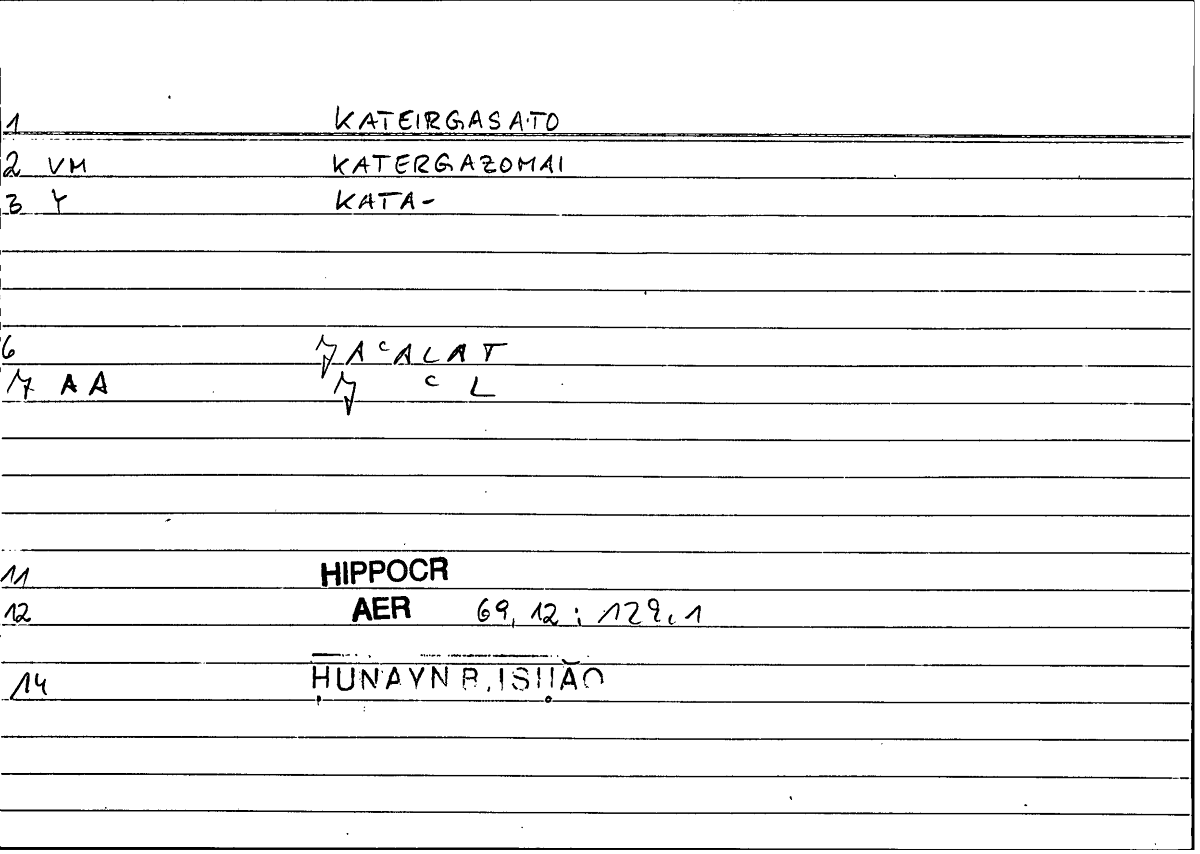 1 KATEIRGASATO
2 VM KATERGAZOMAI
3 Y KATA-
6 ǰAᶜALAT
7 AA ǰ ᶜ L
11 HIPPOCR
12 AER 69,12 ; 129,1
14 ḤUNAYN B. ISḤĀQ